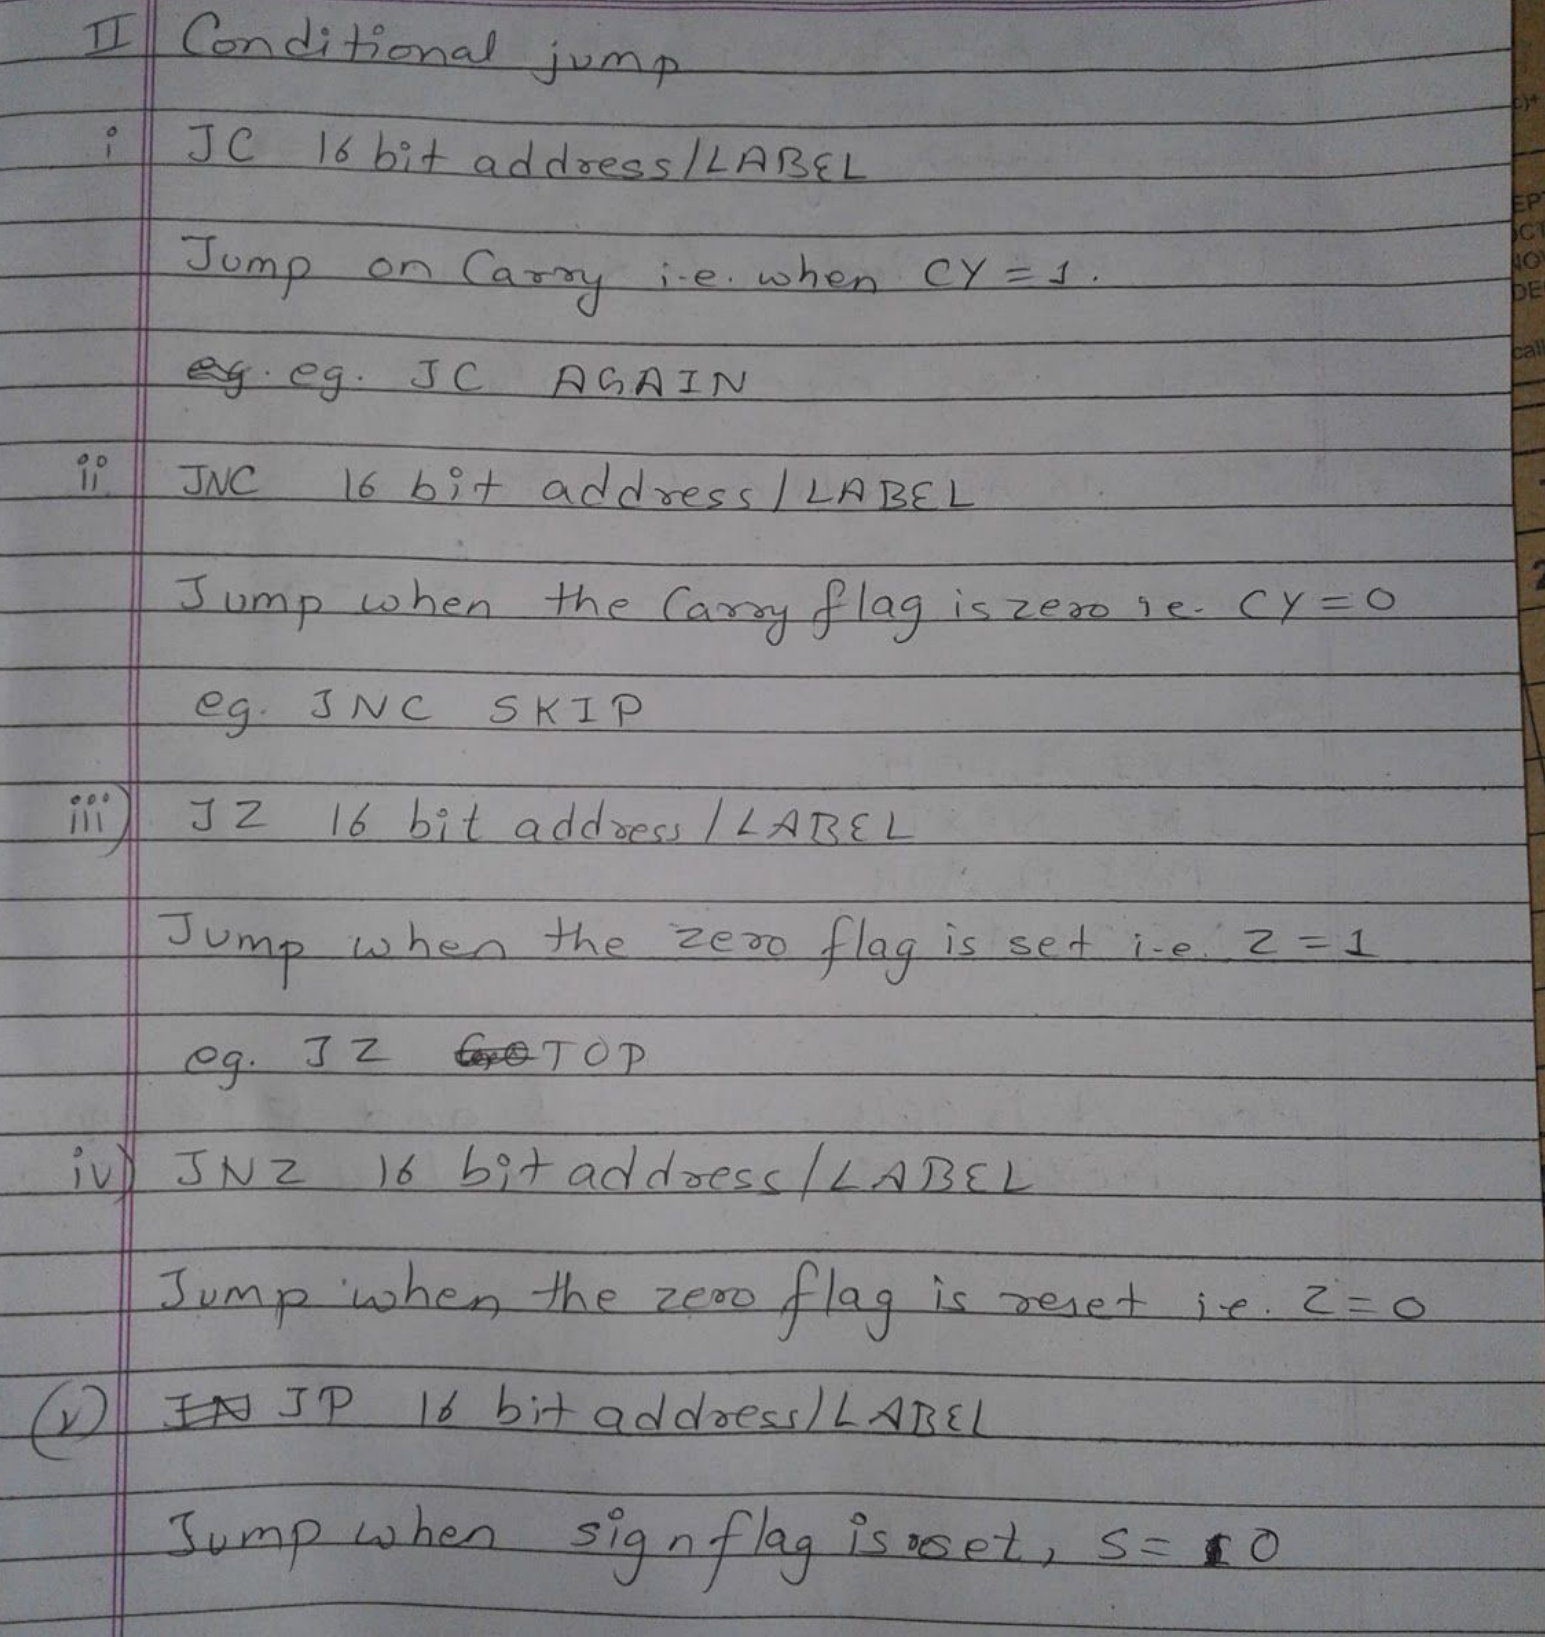 II Conditional jump
i JC 16 bit address/LABEL
Jump on Carry i.e. when CY = 1.
eg. eg. JC AGAIN
ii JNC 16 bit address/LABEL
Jump when the Carry flag is zero ie. CY = 0
eg. JNC SKIP
iii) JZ 16 bit address/LABEL
Jump when the zero flag is set i.e. Z = 1
eg. JZ TOP
iv) JNZ 16 bit address/LABEL
Jump when the zero flag is reset i.e. Z = 0
(v) JN JP 16 bit address/LABEL
Jump when sign flag is reset, S = 0